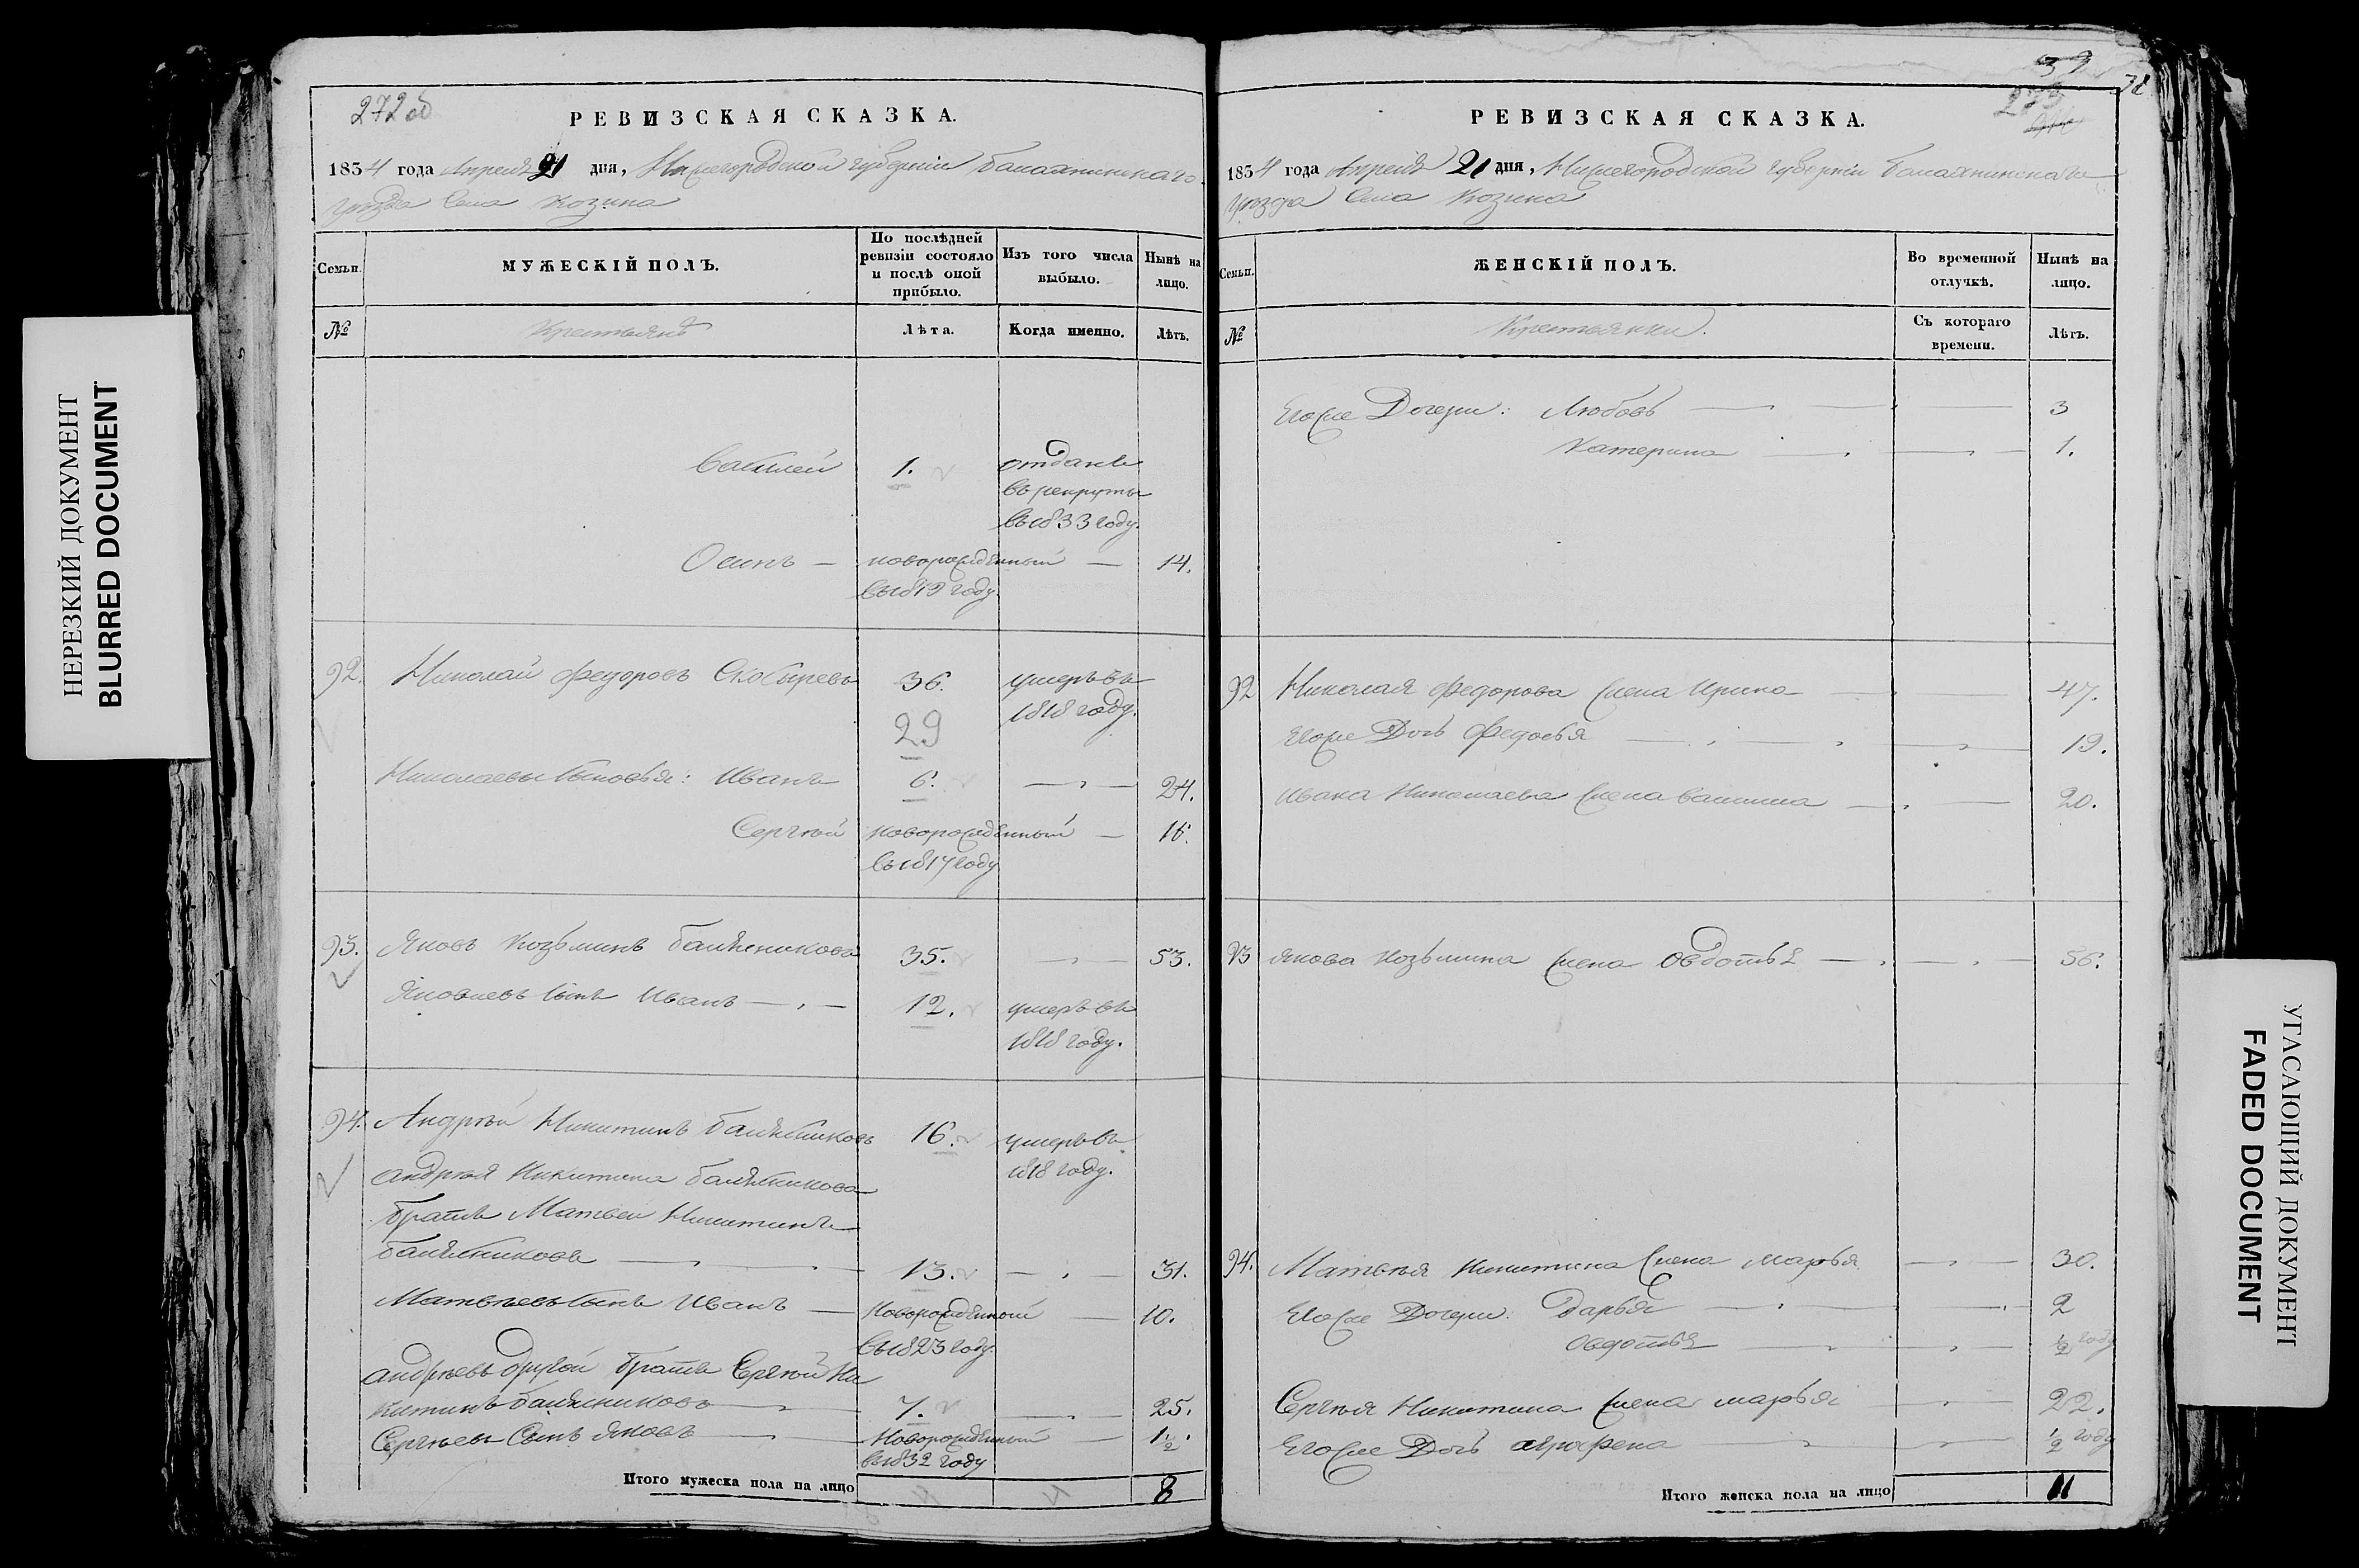 НЕРЕЗКИЙ ДОКУМЕНТ
BLURRED DOCUMENT
272об
РЕВИЗСКАЯ СКАЗКА.
1834 года Апреля 21 дня, Нижегородской губернии Балахнинскаго
уезда Села Козина
Семьи.
МУЖЕСКІЙ ПОЛЪ.
По послѣдней ревизіи состояло и послѣ оной прибыло.
Изъ того числа выбыло.
Нынѣ на лицо.
№
Крестьянъ
Лѣта.
Когда именно.
Лѣтъ.
Василей 1. отданъ
въ рекруты
въ 1833 году.
Осипъ — новорожденный — 14.
въ 1819 году.
92. Николай Федоровъ 36. умеръ въ
29 1818 году.
Николаевы сыновья: Иванъ 6. — 24.
Сергѣй новорожденный — 16.
въ 1817 году
93. Яковъ Козьминъ 35. — 53.
Яковлевъ сынъ Иванъ — 12. умеръ въ
1818 году.
94. Андрѣй Никитинъ 16. умеръ въ
1818 году.
Андрѣя Никитина
братъ Матвей Никитинъ
13. — 31.
Матвѣевъ сынъ Иванъ — новорожденный — 10.
въ 1823 году.
Андрѣевъ другой братъ Сергѣй Ни
китинъ 7. — 25.
Сергѣевъ Сынъ Яковъ — Новорожденный — 1½.
въ 1832 году
Итого мужеска пола на лицо 8
39
38
273
РЕВИЗСКАЯ СКАЗКА.
1834 года Апреля 21 дня, Нижегородской губерніи Балахнинскаго
уезда Села Козина
Семьи.
ЖЕНСКІЙ ПОЛЪ.
Во временной отлучкѣ.
Нынѣ на лицо.
№
Крестьянки.
Съ котораго времени.
Лѣтъ.
Егоже Дочери: Любовь — 3
Катерина — 1.
92 Николая Федорова жена Ирина — 47.
Егоже Дочь Федосья — 19.
Ивана Николаева жена — 20.
93 Якова Козьмина жена Овдотья — 56.
94. Матвѣя Никитина жена Марья — 30.
Егоже Дочери: Дарья — 2
Овдотья — ½ году
Сергѣя Никитина жена Марья — 22.
Егоже Дочь Аграфена — ½ году
Итого женска пола на лицо 11
УГАСАЮЩИЙ ДОКУМЕНТ
FADED DOCUMENT